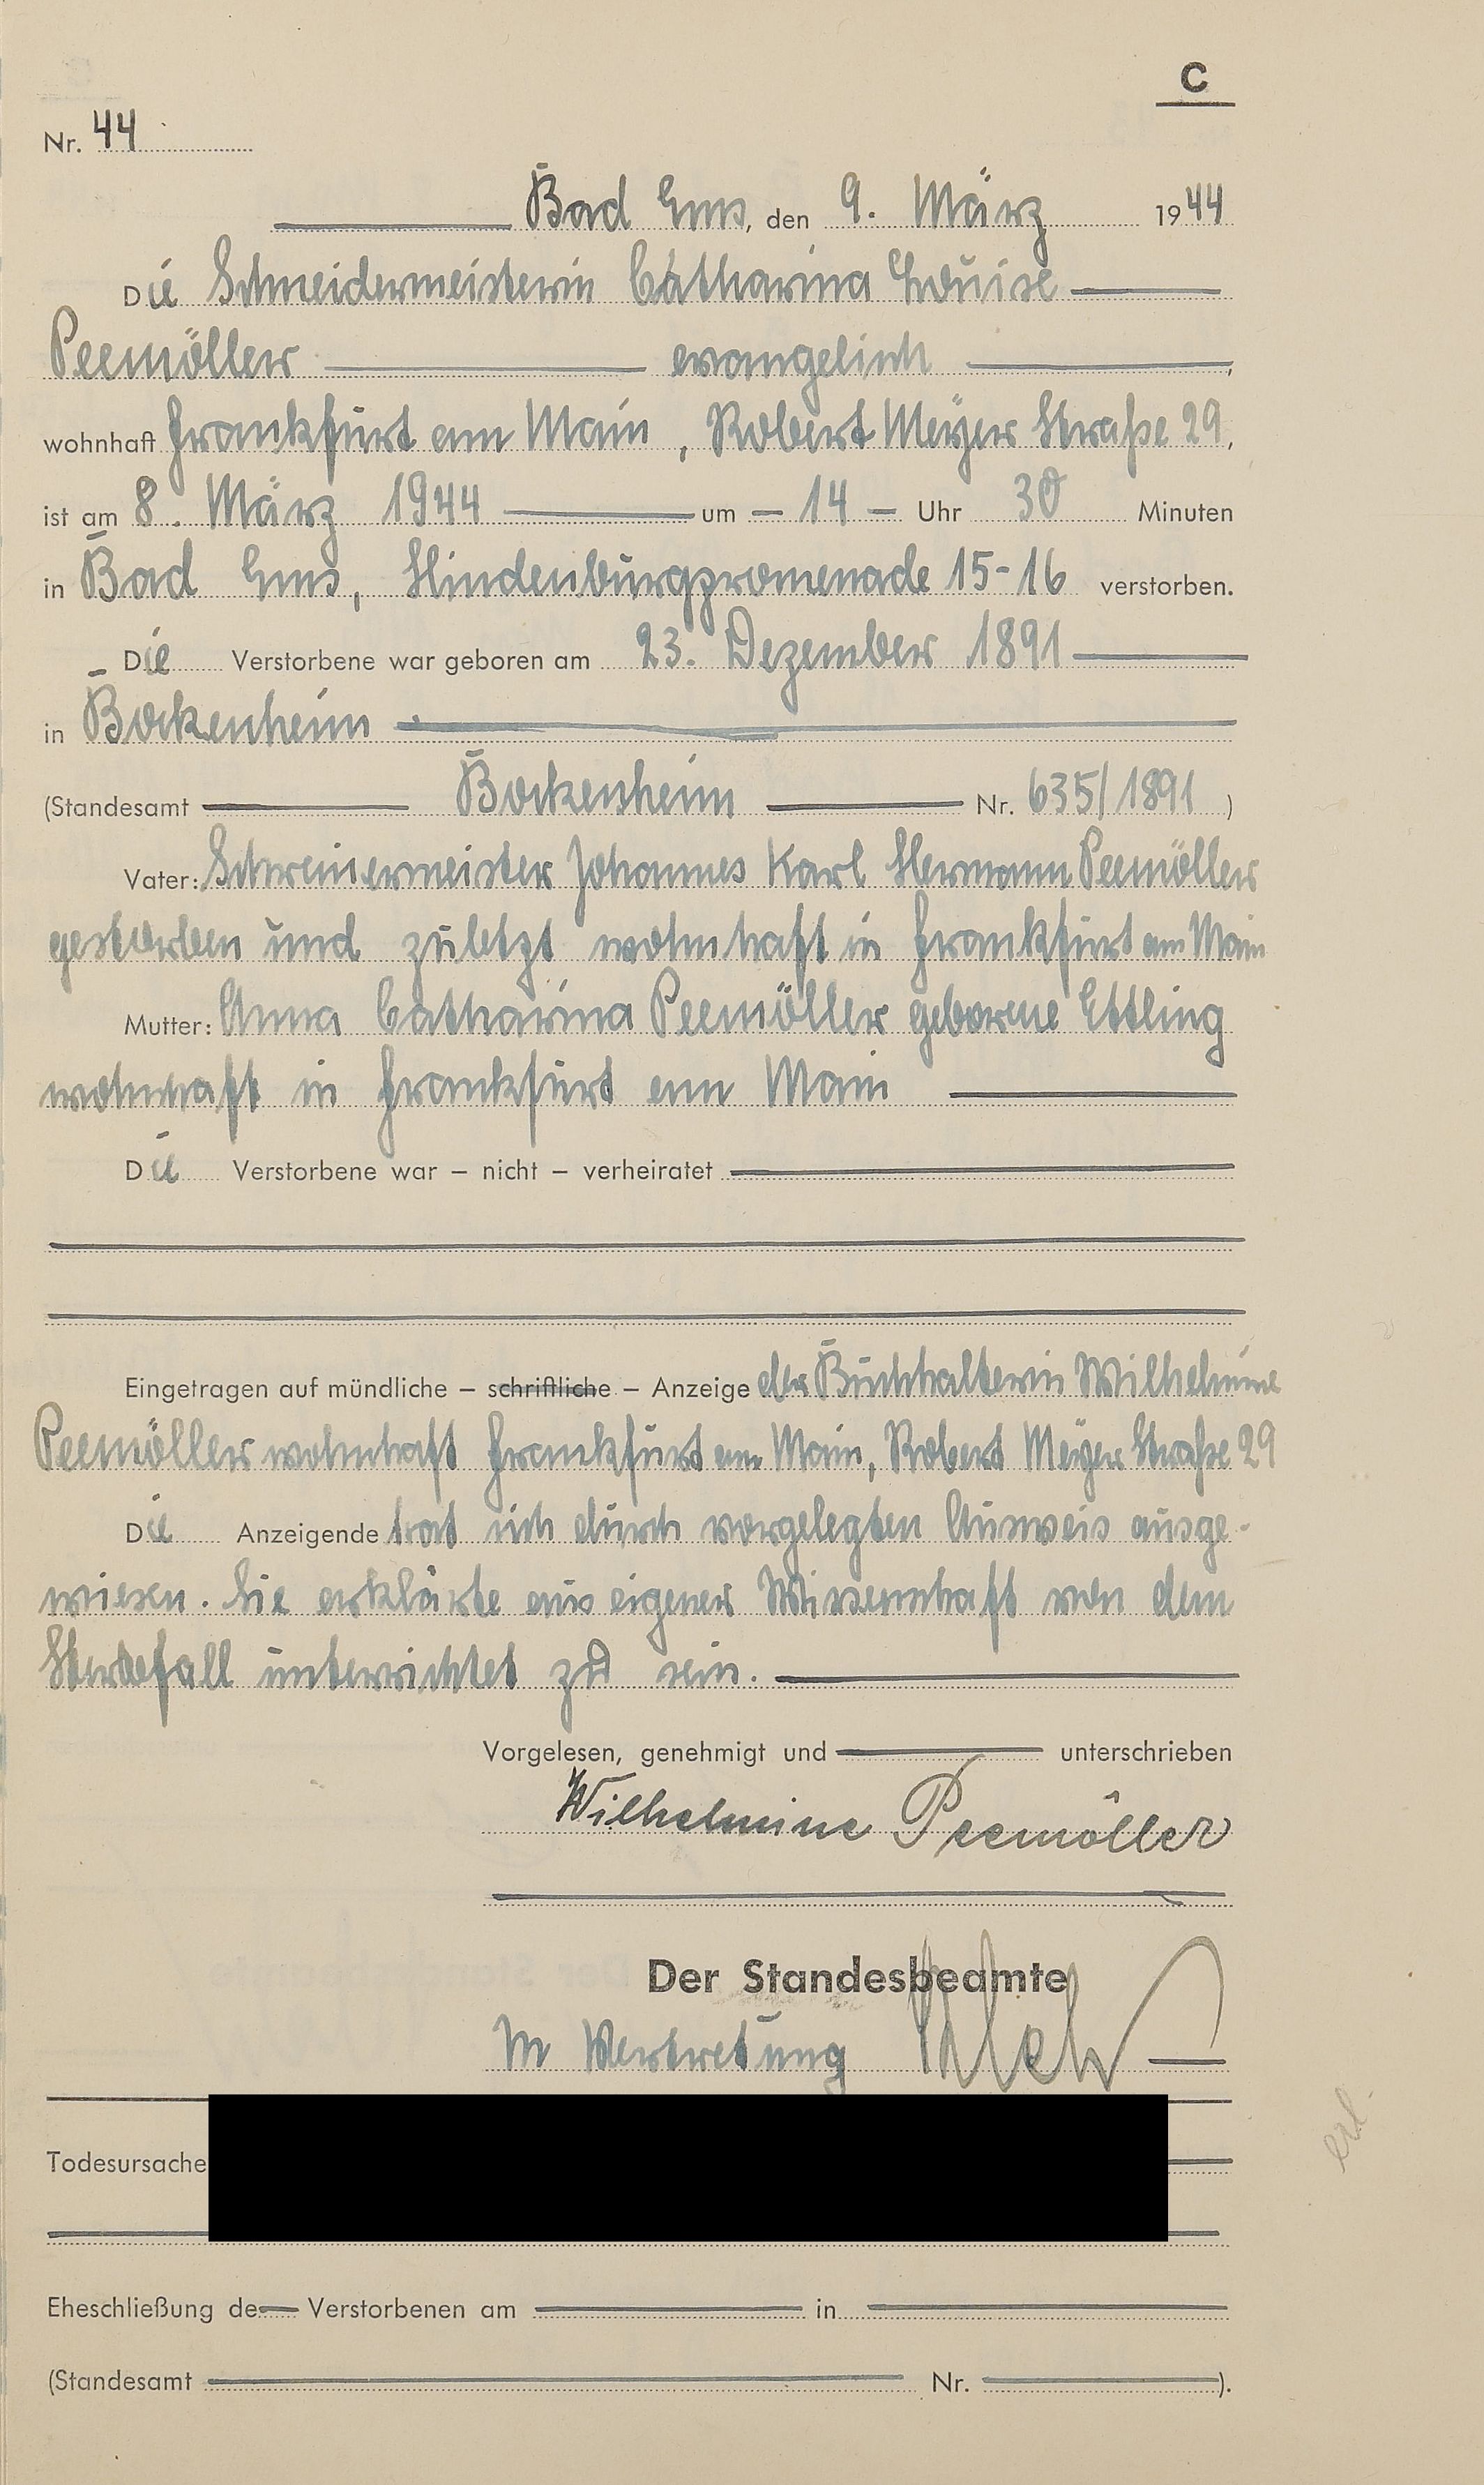 C
Nr. 44
Bad Ems, den 9. März 1944
Die Schneidermeisterin Catharina Louise
Peemöller evangelisch,
wohnhaft Frankfurt am Main, Robert Meyer Straße 29,
ist am 8. März 1944 um 14 Uhr 30 Minuten
in Bad Ems, Hindenburgpromenade 15-16 verstorben.
Die Verstorbene war geboren am 23. Dezember 1891
in Bockenheim
(Standesamt Bockenheim Nr. 635/1891)
Vater: Schreinermeister Johannes Karl Hermann Peemöller
gestorben und zuletzt wohnhaft in Frankfurt am Main
Mutter: Anna Catharina Peemöller geborene Ettling
wohnhaft in Frankfurt am Main
Die Verstorbene war – nicht – verheiratet
Eingetragen auf mündliche – schriftliche – Anzeige der Buchhalterin Wilhelmine
Peemöller wohnhaft Frankfurt am Main, Robert Meyer Straße 29
Die Anzeigende hat sich durch vorgelegten Ausweis ausge-
wiesen. Sie erklärte aus eigener Wissenschaft von dem
Sterbefall unterrichtet zu sein.
Vorgelesen, genehmigt und unterschrieben
Wilhelmine Peemöller
Der Standesbeamte
In Vertretung
Todesursache
erl.
Eheschließung de Verstorbenen am in
(Standesamt Nr. ).